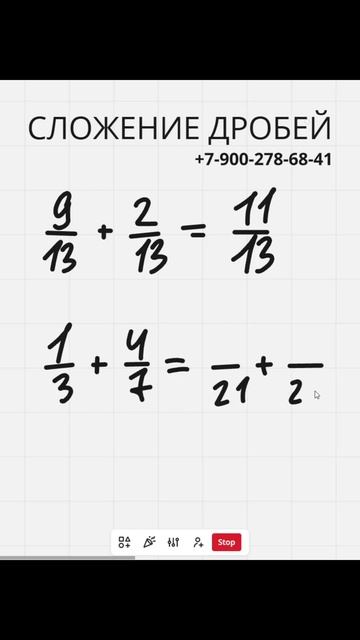 СЛОЖЕНИЕ ДРОБЕЙ
+7-900-278-68-41
9/13 + 2/13 = 11/13
1/3 + 4/7 = /21 + /2
Stop